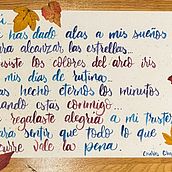 has dado alas a mis sueños
para alcanzar las estrellas...
los colores del arco iris
mis días de rutina...
has hecho eternos los minutos
cuando estás conmigo...
regalaste alegría a mi tristeza
para sentir que todo lo que
ocurre vale la pena.